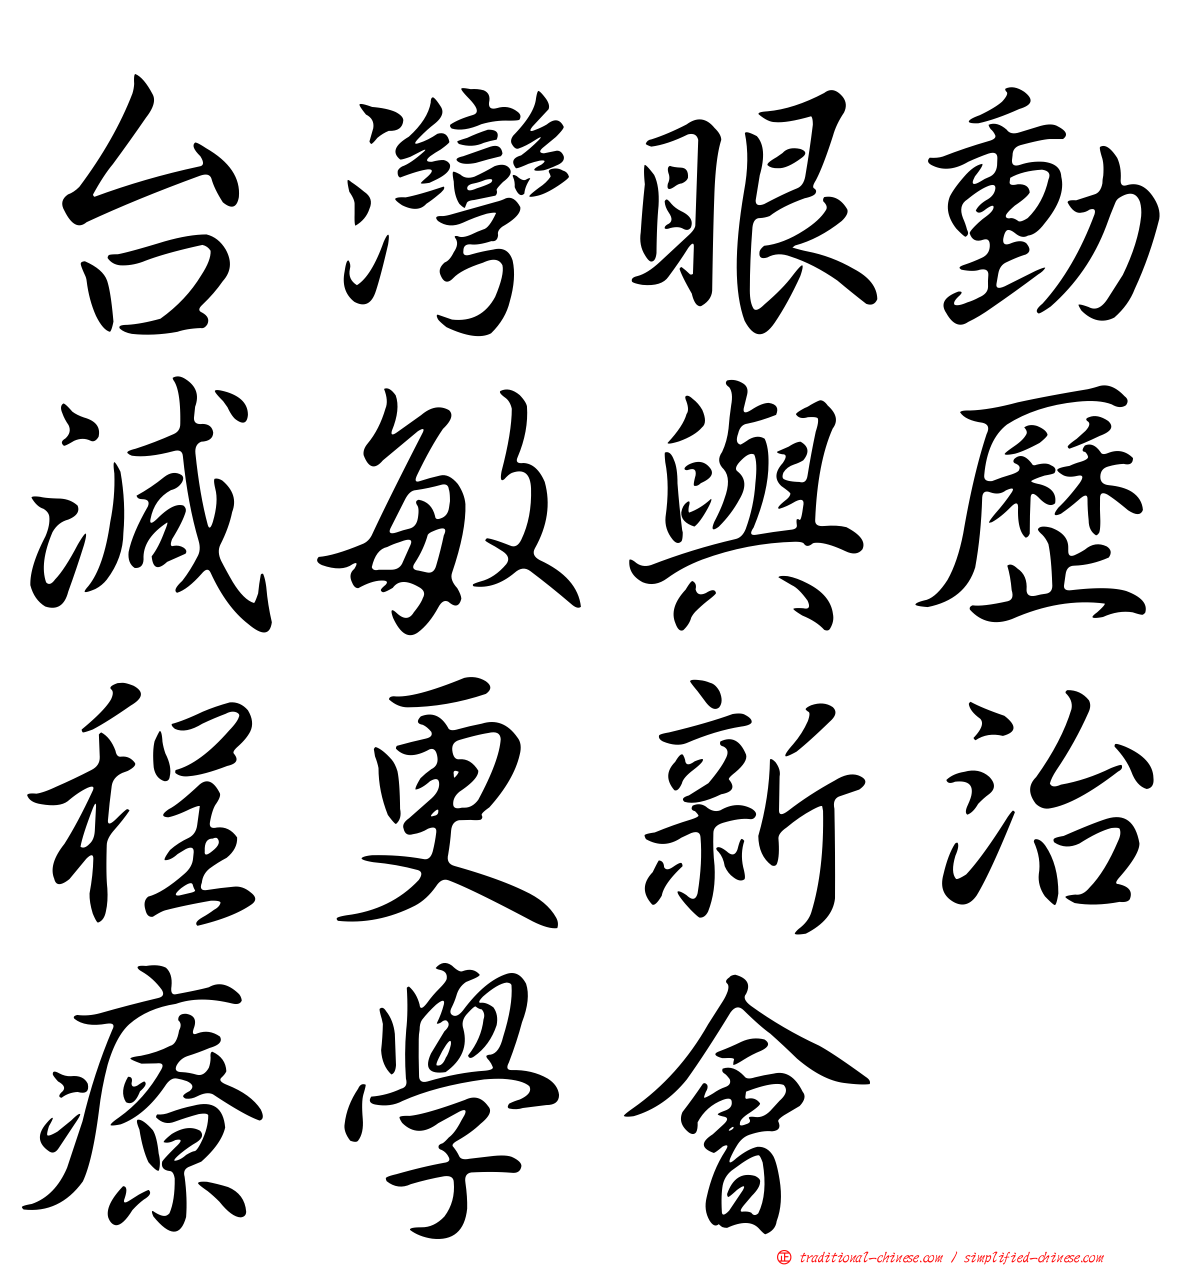 台灣眼動
減敏與歷
程更新治
療學會
正 traditional-chinese.com / simplified-chinese.com